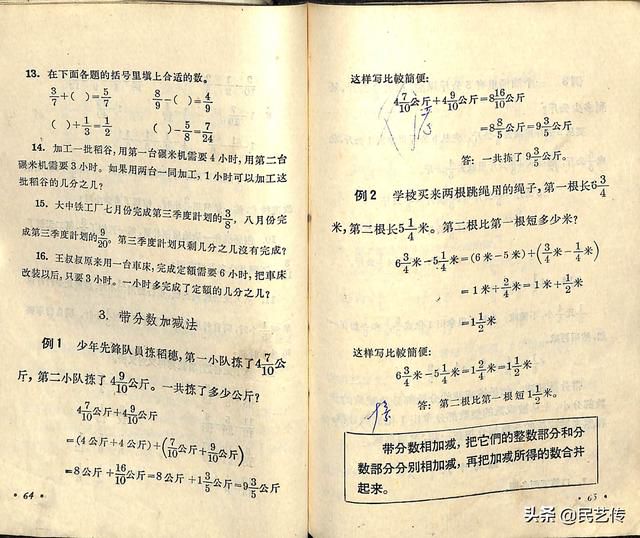 13. 在下面各题的括号里填上合适的数。
3/7+( )=5/7 8/9-( )=4/9
( )+1/3=1/2 ( )-5/8=7/24
14. 加工一批稻谷，用第一台碾米机需要4小时，用第二台
碾米机需要3小时。如果用两台一同加工，1小时可以加工这
批稻谷的几分之几？
15. 大中铁工厂七月份完成第三季度計划的3/8，八月份完
成第三季度計划的9/20。第三季度計划只剩几分之几沒有完成？
16. 王叔叔原来用一台車床，完成定額需要6小时，把車床
改装以后，只要3小时。一小时多完成了定額的几分之几？
3. 带分数加减法
例1 少年先鋒队員拣稻穗，第一小队拣了4 7/10公
斤，第二小队拣了4 9/10公斤。一共拣了多少公斤？
4 7/10公斤+4 9/10公斤
=(4公斤+4公斤)+(7/10公斤+9/10公斤)
=8公斤+16/10公斤=8公斤+1 3/5公斤=9 3/5公斤
• 64 •
这样写比較簡便：
4 7/10公斤+4 9/10公斤=8 16/10公斤
=8 8/5公斤=9 3/5公斤
答：一共拣了9 3/5公斤。
例2 学校买来两根跳绳用的绳子，第一根长6 3/4
米，第二根长5 1/4米。第二根比第一根短多少米？
6 3/4米-5 1/4米=(6米-5米)+(3/4米-1/4米)
=1米+2/4米=1米+1/2米
=1 1/2米
这样写比較簡便：
6 3/4米-5 1/4米=1 2/4米=1 1/2米
答：第二根比第一根短1 1/2米。
带分数相加减，把它們的整数部分和分
数部分分别相加减，再把加减所得的数合并
起来。
• 65 •
头条 @民艺传